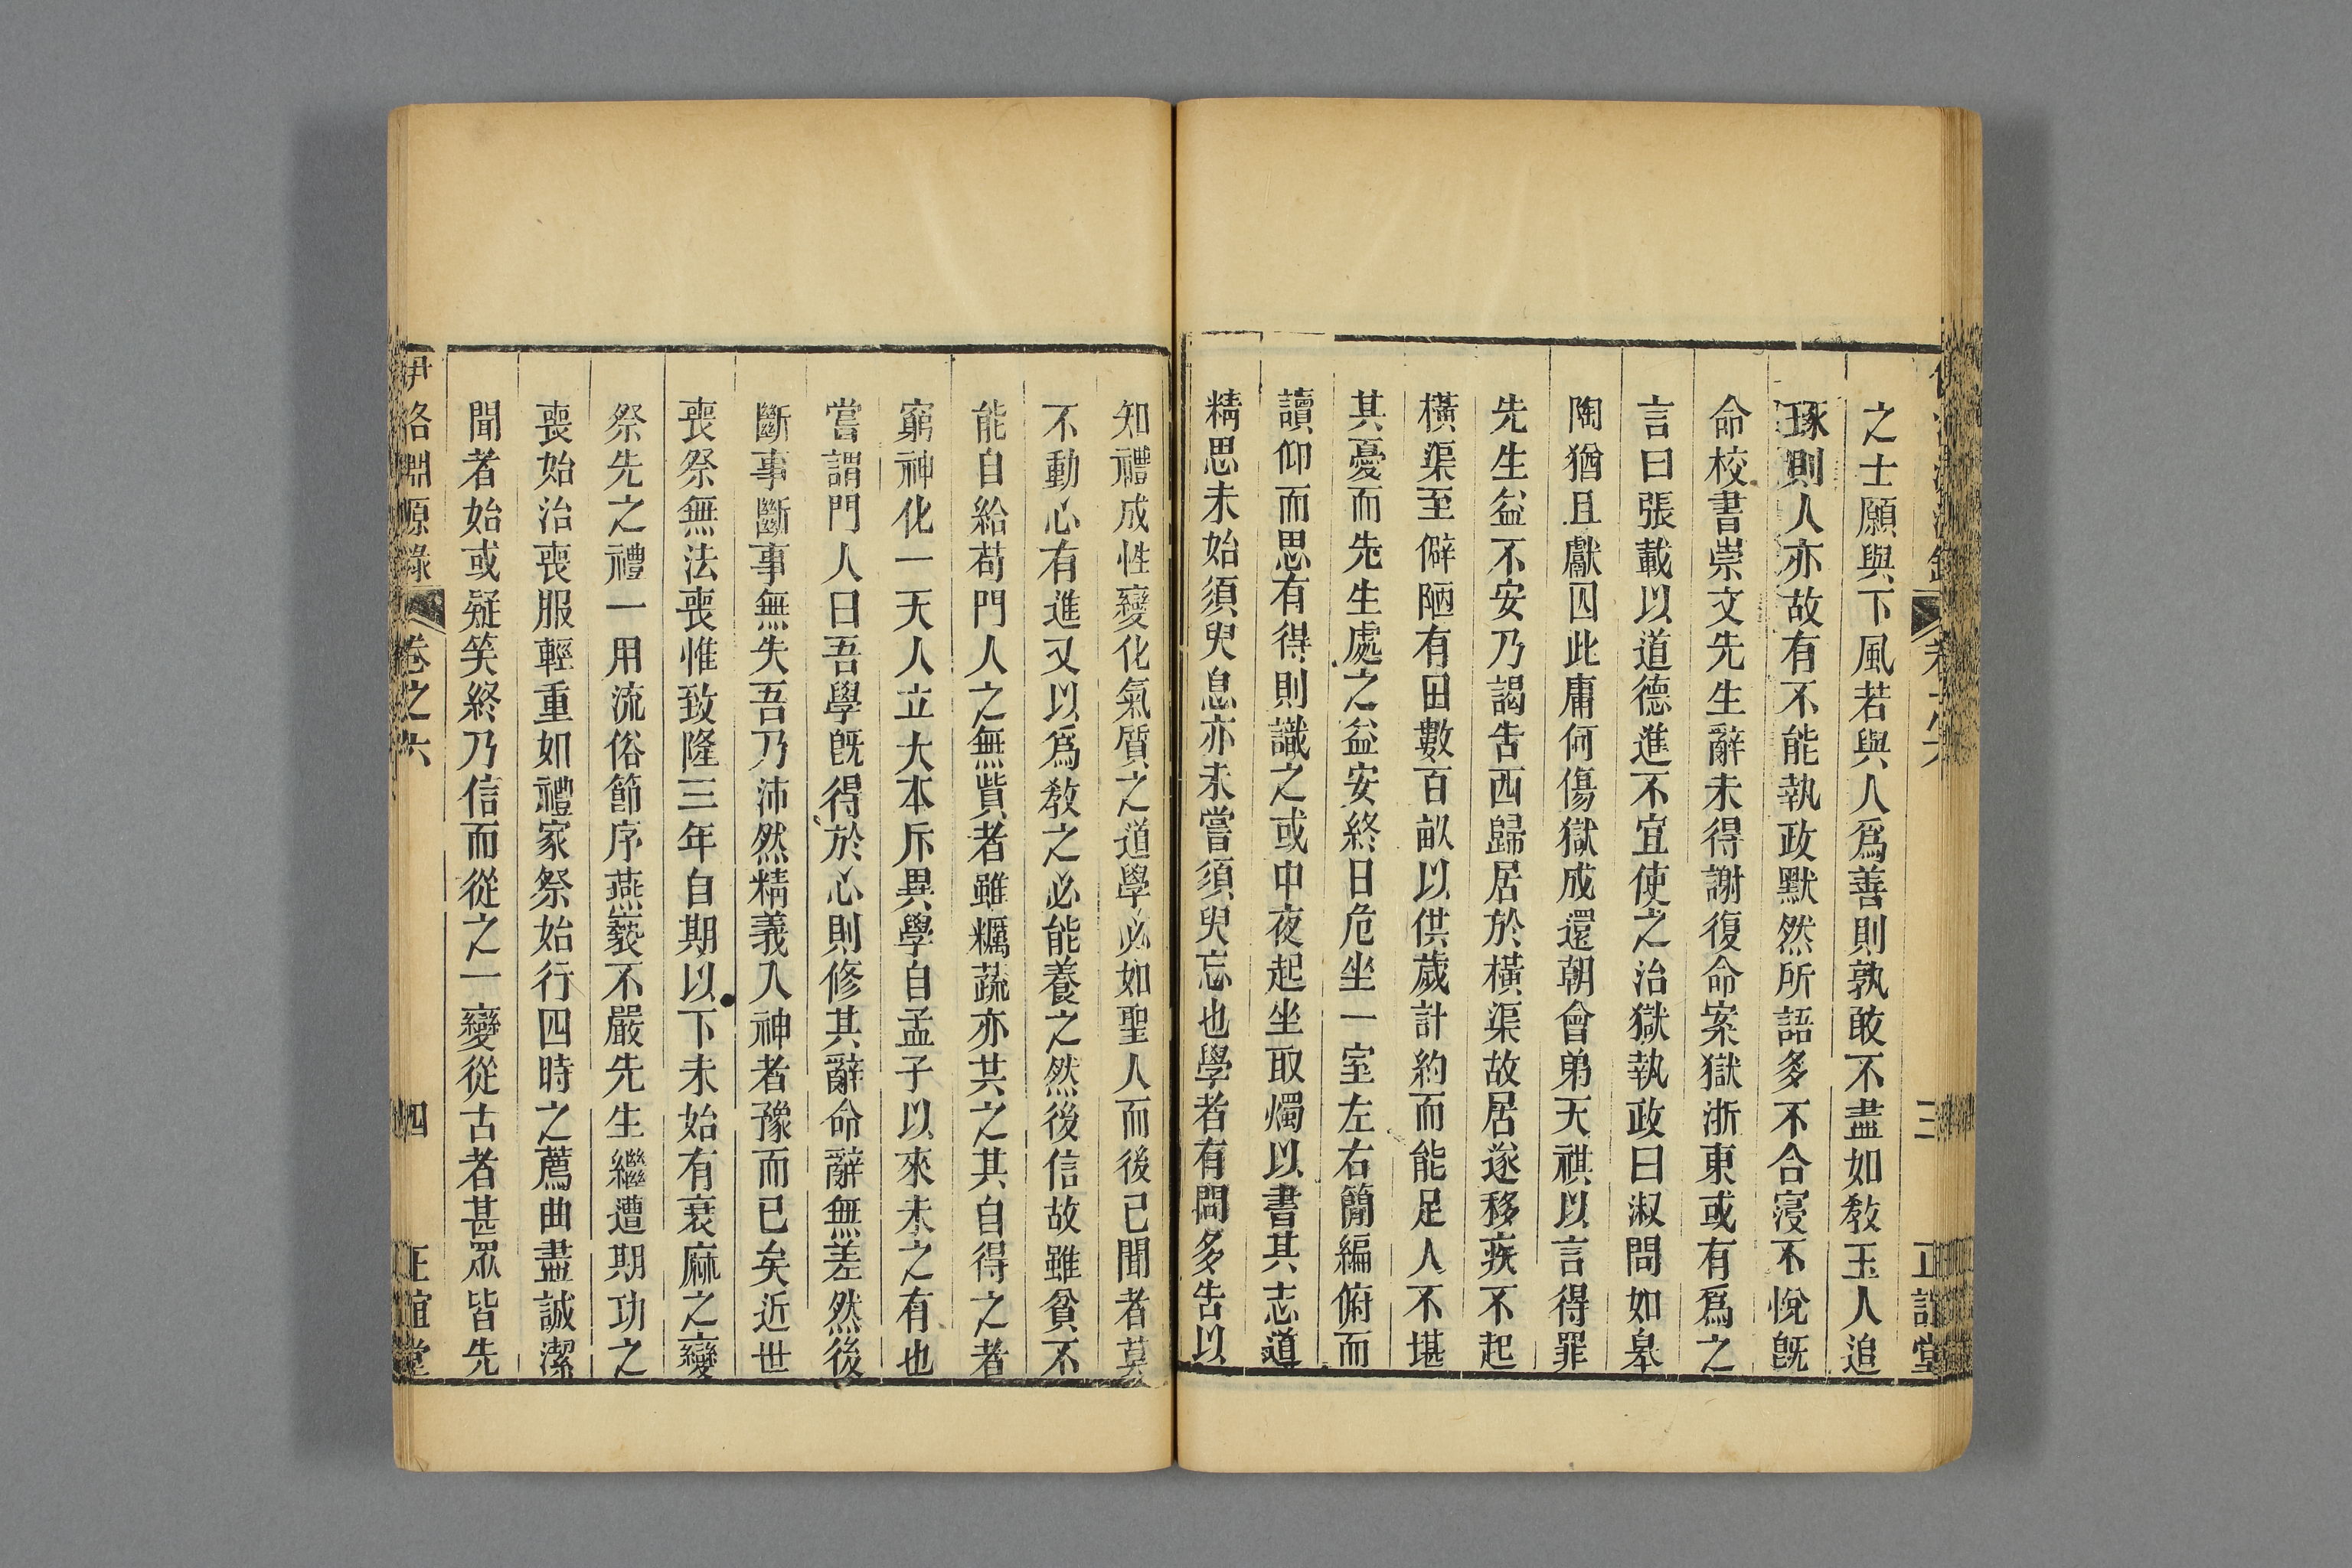 之士願與下風若與人爲善則孰敢不盡如教玉人追
琢則人亦故有不能執政默然所語多不合寖不悅旣
命校書崇文先生辭未得謝復命案獄浙東或有爲之
言曰張載以道德進不宜使之治獄執政曰淑問如皋
陶猶且獻囚此庸何傷獄成還朝會弟天祺以言得罪
先生益不安乃謁告西歸居於橫渠故居遂移疾不起
橫渠至僻陋有田數百畝以供歲計約而能足人不堪
其憂而先生處之益安終日危坐一室左右簡編俯而
讀仰而思有得則識之或中夜起坐取燭以書其志道
精思未始須臾息亦未嘗須臾忘也學者有問多告以
知禮成性變化氣質之道學必如聖人而後已聞者莫
不動心有進又以爲教之必能養之然後信故雖貧不
能自給苟門人之無貲者雖糲蔬亦共之其自得之者
窮神化一天人立大本斥異學自孟子以來未之有也
嘗謂門人曰吾學旣得於心則修其辭命辭無差然後
斷事斷事無失吾乃沛然精義入神者豫而已矣近世
喪祭無法喪惟致隆三年自期以下未始有衰麻之變
祭先之禮一用流俗節序燕褻不嚴先生繼遭期功之
喪始治喪服輕重如禮家祭始行四時之薦曲盡誠潔
聞者始或疑笑終乃信而從之一變從古者甚眾皆先
伊洛淵源錄 卷之六 四 正誼堂